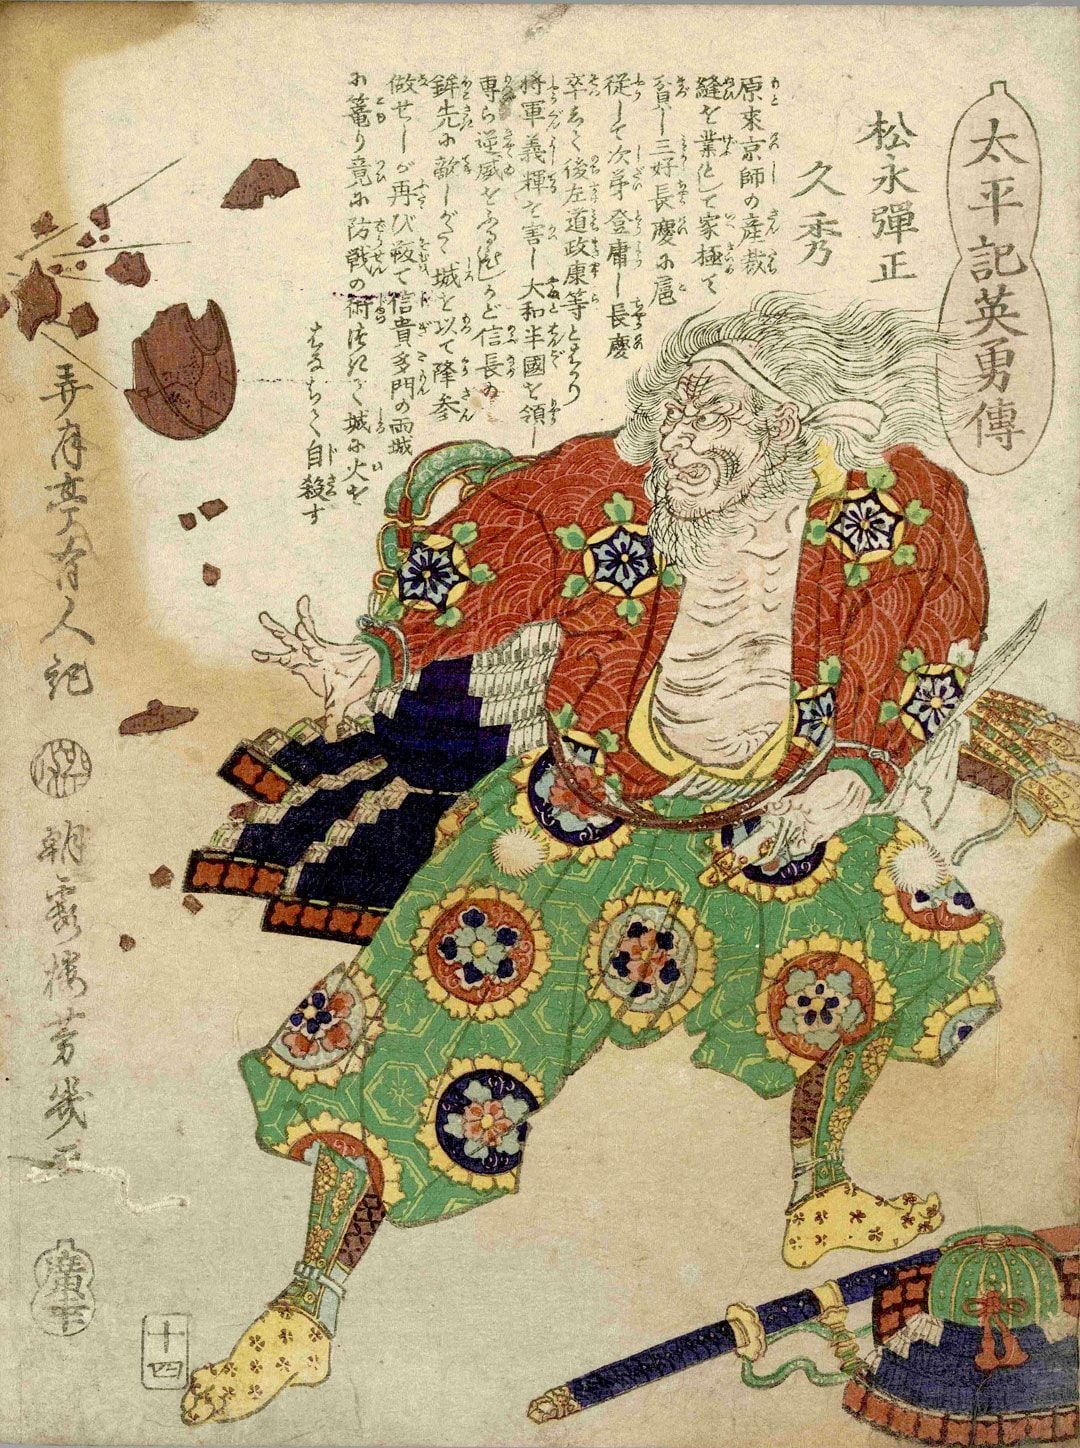 太平記英勇傳
松永彈正
久秀
原來京師の産裁
縫を業として家極て
貧し三好長慶に扈
従して次第登庸し長慶
卒して後左道政康等とはかり
将軍義輝を害し大和半國を領し
専ら逆威をふるひしかど信長ぬ
鉾先に敵しがたく城を以て降参
做せしが再び叛て信貴多門の両城
に篭り竟に防戦の術つきて城に火を
はなちて自殺す
弄月亭有人記
朝霞楼芳幾画
十四